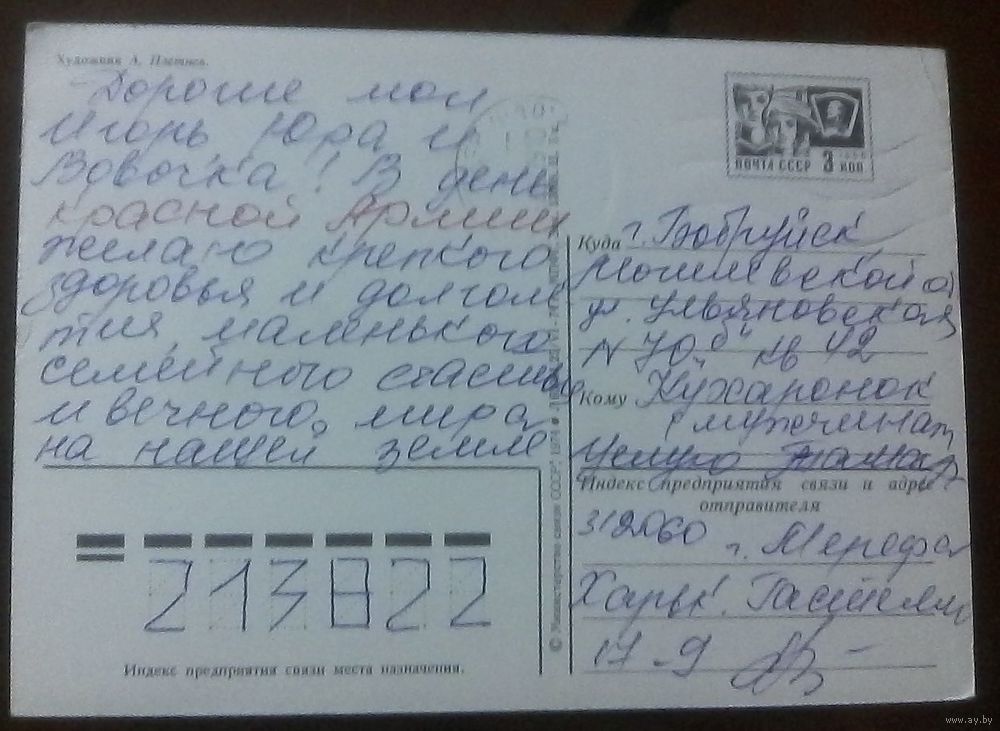 Художник А. Плетнев.
Дорогие мои
Игорь Юра и
Вовочка! В день
красной Армии
желаю крепкого
здоровья и долголе
тия, маленького
семейного счастья
и вечного мира
на нашей земле
ПОЧТА СССР 3 КОП
Куда г. Бобруйск
Могилевской о
ул. Ульяновская
N 70 "б" кв 42
Кому Кухаронок
мужчинам
Целую
Индекс предприятия связи и адрес
отправителя
312060 г. Мерефа
Харьк. Гастелло
17-9
© Министерство связи СССР, 1974
213822
Индекс предприятия связи места назначения.
www.ay.by